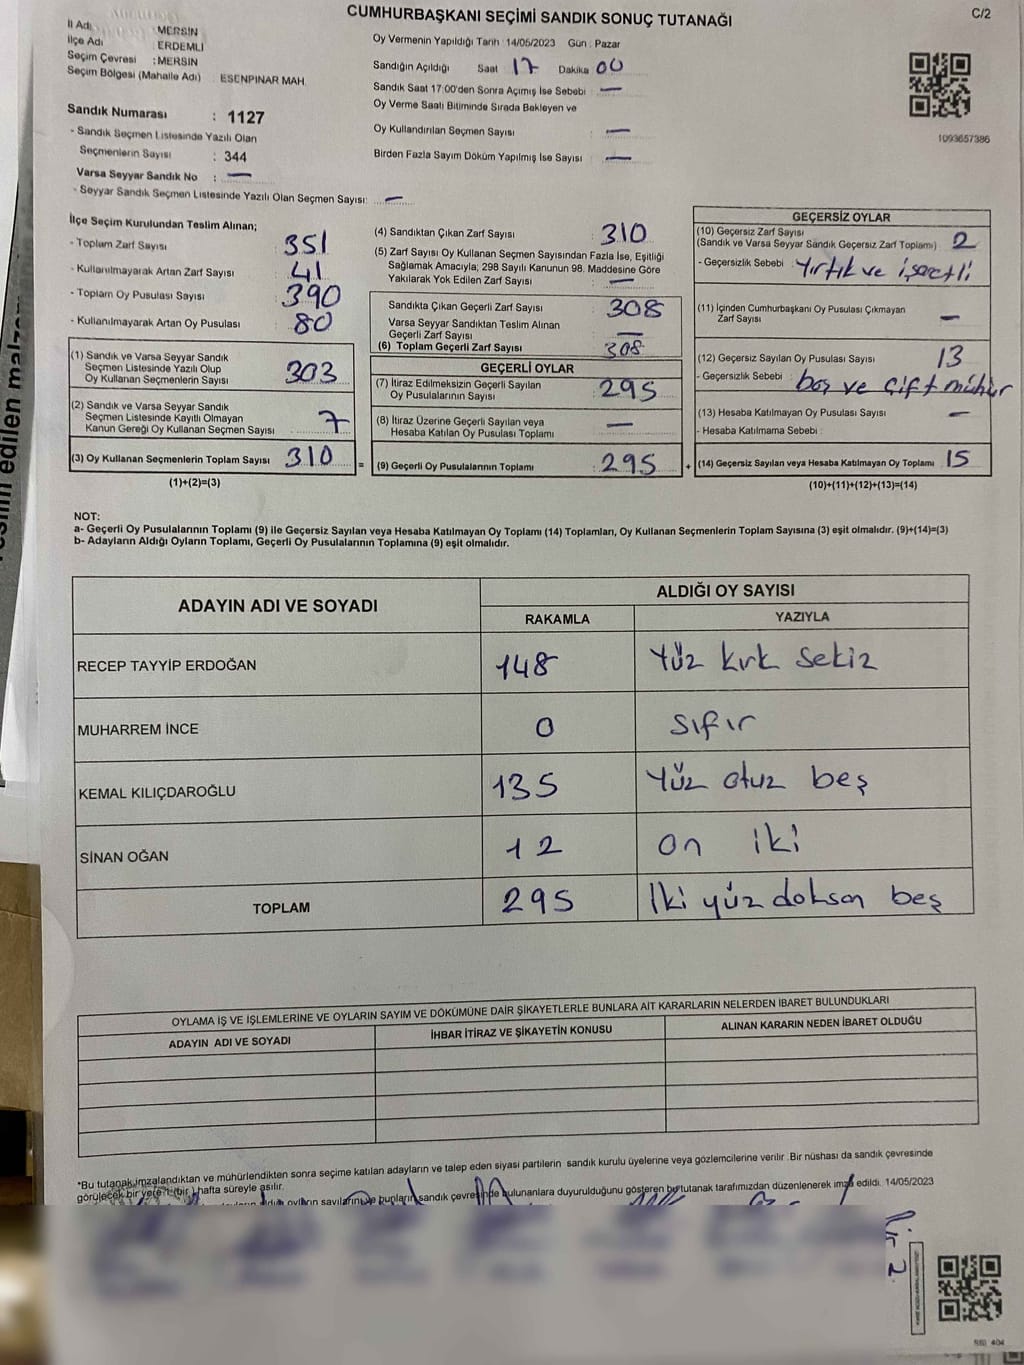 CUMHURBAŞKANI SEÇİMİ SANDIK SONUÇ TUTANAĞI
C/2
İl Adı : MERSİN
İlçe Adı : ERDEMLİ
Seçim Çevresi : MERSİN
Seçim Bölgesi (Mahalle Adı) : ESENPINAR MAH.
Sandık Numarası : 1127
- Sandık Seçmen Listesinde Yazılı Olan
Seçmenlerin Sayısı : 344
Varsa Seyyar Sandık No : —
- Seyyar Sandık Seçmen Listesinde Yazılı Olan Seçmen Sayısı: —
Oy Vermenin Yapıldığı Tarih : 14/05/2023 Gün : Pazar
Sandığın Açıldığı Saat 17 Dakika 00
Sandık Saat 17:00'den Sonra Açımış İse Sebebi : —
Oy Verme Saati Bitiminde Sırada Bekleyen ve
Oy Kullandırılan Seçmen Sayısı : —
Birden Fazla Sayım Döküm Yapılmış İse Sayısı : —
1093657386
İlçe Seçim Kurulundan Teslim Alınan;
- Toplam Zarf Sayısı 351
- Kullanılmayarak Artan Zarf Sayısı 41
- Toplam Oy Pusulası Sayısı 390
- Kullanılmayarak Artan Oy Pusulası 80
(1) Sandık ve Varsa Seyyar Sandık
Seçmen Listesinde Yazılı Olup
Oy Kullanan Seçmenlerin Sayısı 303
(2) Sandık ve Varsa Seyyar Sandık
Seçmen Listesinde Kayıtlı Olmayan
Kanun Gereği Oy Kullanan Seçmen Sayısı 7
(3) Oy Kullanan Seçmenlerin Toplam Sayısı 310 =
(1)+(2)=(3)
(4) Sandıktan Çıkan Zarf Sayısı 310
(5) Zarf Sayısı Oy Kullanan Seçmen Sayısından Fazla İse, Eşitliği
Sağlamak Amacıyla; 298 Sayılı Kanunun 98. Maddesine Göre
Yakılarak Yok Edilen Zarf Sayısı : —
Sandıkta Çıkan Geçerli Zarf Sayısı 308
Varsa Seyyar Sandıktan Teslim Alınan
Geçerli Zarf Sayısı —
(6) Toplam Geçerli Zarf Sayısı 308
GEÇERLİ OYLAR
(7) İtiraz Edilmeksizin Geçerli Sayılan
Oy Pusulalarının Sayısı : 295
(8) İtiraz Üzerine Geçerli Sayılan veya
Hesaba Katılan Oy Pusulası Toplamı : —
(9) Geçerli Oy Pusulalarının Toplamı : 295 +
GEÇERSİZ OYLAR
(10) Geçersiz Zarf Sayısı
(Sandık ve Varsa Seyyar Sandık Geçersiz Zarf Toplamı) 2
- Geçersizlik Sebebi : Yırtık ve işaretli
(11) İçinden Cumhurbaşkanı Oy Pusulası Çıkmayan
Zarf Sayısı —
(12) Geçersiz Sayılan Oy Pusulası Sayısı 13
- Geçersizlik Sebebi : boş ve çift mühür
(13) Hesaba Katılmayan Oy Pusulası Sayısı —
- Hesaba Katılmama Sebebi :
(14) Geçersiz Sayılan veya Hesaba Katılmayan Oy Toplamı 15
(10)+(11)+(12)+(13)=(14)
NOT:
a- Geçerli Oy Pusulalarının Toplamı (9) ile Geçersiz Sayılan veya Hesaba Katılmayan Oy Toplamı (14) Toplamları, Oy Kullanan Seçmenlerin Toplam Sayısına (3) eşit olmalıdır. (9)+(14)=(3)
b- Adayların Aldığı Oyların Toplamı, Geçerli Oy Pusulalarının Toplamına (9) eşit olmalıdır.
ADAYIN ADI VE SOYADI
ALDIĞI OY SAYISI
RAKAMLA YAZIYLA
RECEP TAYYİP ERDOĞAN 148 Yüz kırk sekiz
MUHARREM İNCE 0 Sıfır
KEMAL KILIÇDAROĞLU 135 Yüz otuz beş
SİNAN OĞAN 12 on iki
TOPLAM 295 İki yüz doksan beş
OYLAMA İŞ VE İŞLEMLERİNE VE OYLARIN SAYIM VE DÖKÜMÜNE DAİR ŞİKAYETLERLE BUNLARA AİT KARARLARIN NELERDEN İBARET BULUNDUKLARI
ADAYIN ADI VE SOYADI İHBAR İTİRAZ VE ŞİKAYETİN KONUSU ALINAN KARARIN NEDEN İBARET OLDUĞU
*Bu tutanak imzalandıktan ve mühürlendikten sonra seçime katılan adayların ve talep eden siyasi partilerin sandık kurulu üyelerine veya gözlemcilerine verilir .Bir nüshası da sandık çevresinde
görülecek bir yere 1 (bir) hafta süreyle asılır.
oyların sayılarını ve bunların sandık çevresinde bulunanlara duyurulduğunu gösteren bu tutanak tarafımızdan düzenlenerek imza edildi. 14/05/2023
edilen malzem